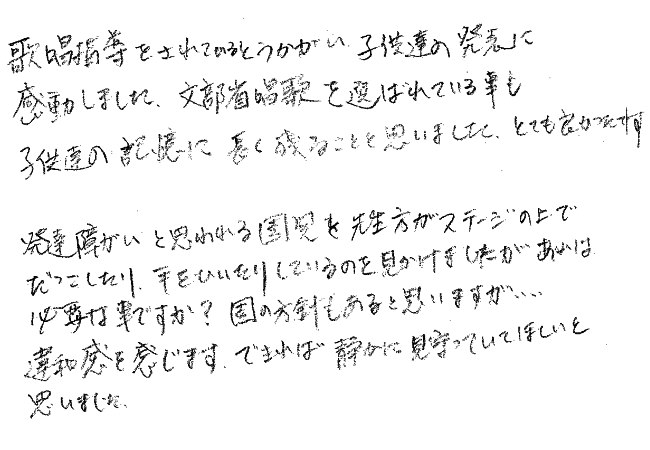 歌唱指導をされているとうかがい、子供達の発表に
感動しました。文部省唱歌を選ばれている事も
子供達の記憶に長く残ることと思いました。とても良かったです
発達障がいと思われる園児を先生方がステージの上で
だっこしたり、手をひいたりしているのを見かけましたがあれは
必要な事ですか？園の方針もあると思いますが....
違和感を感じます。できれば静かに見守っていてほしいと
思いました。